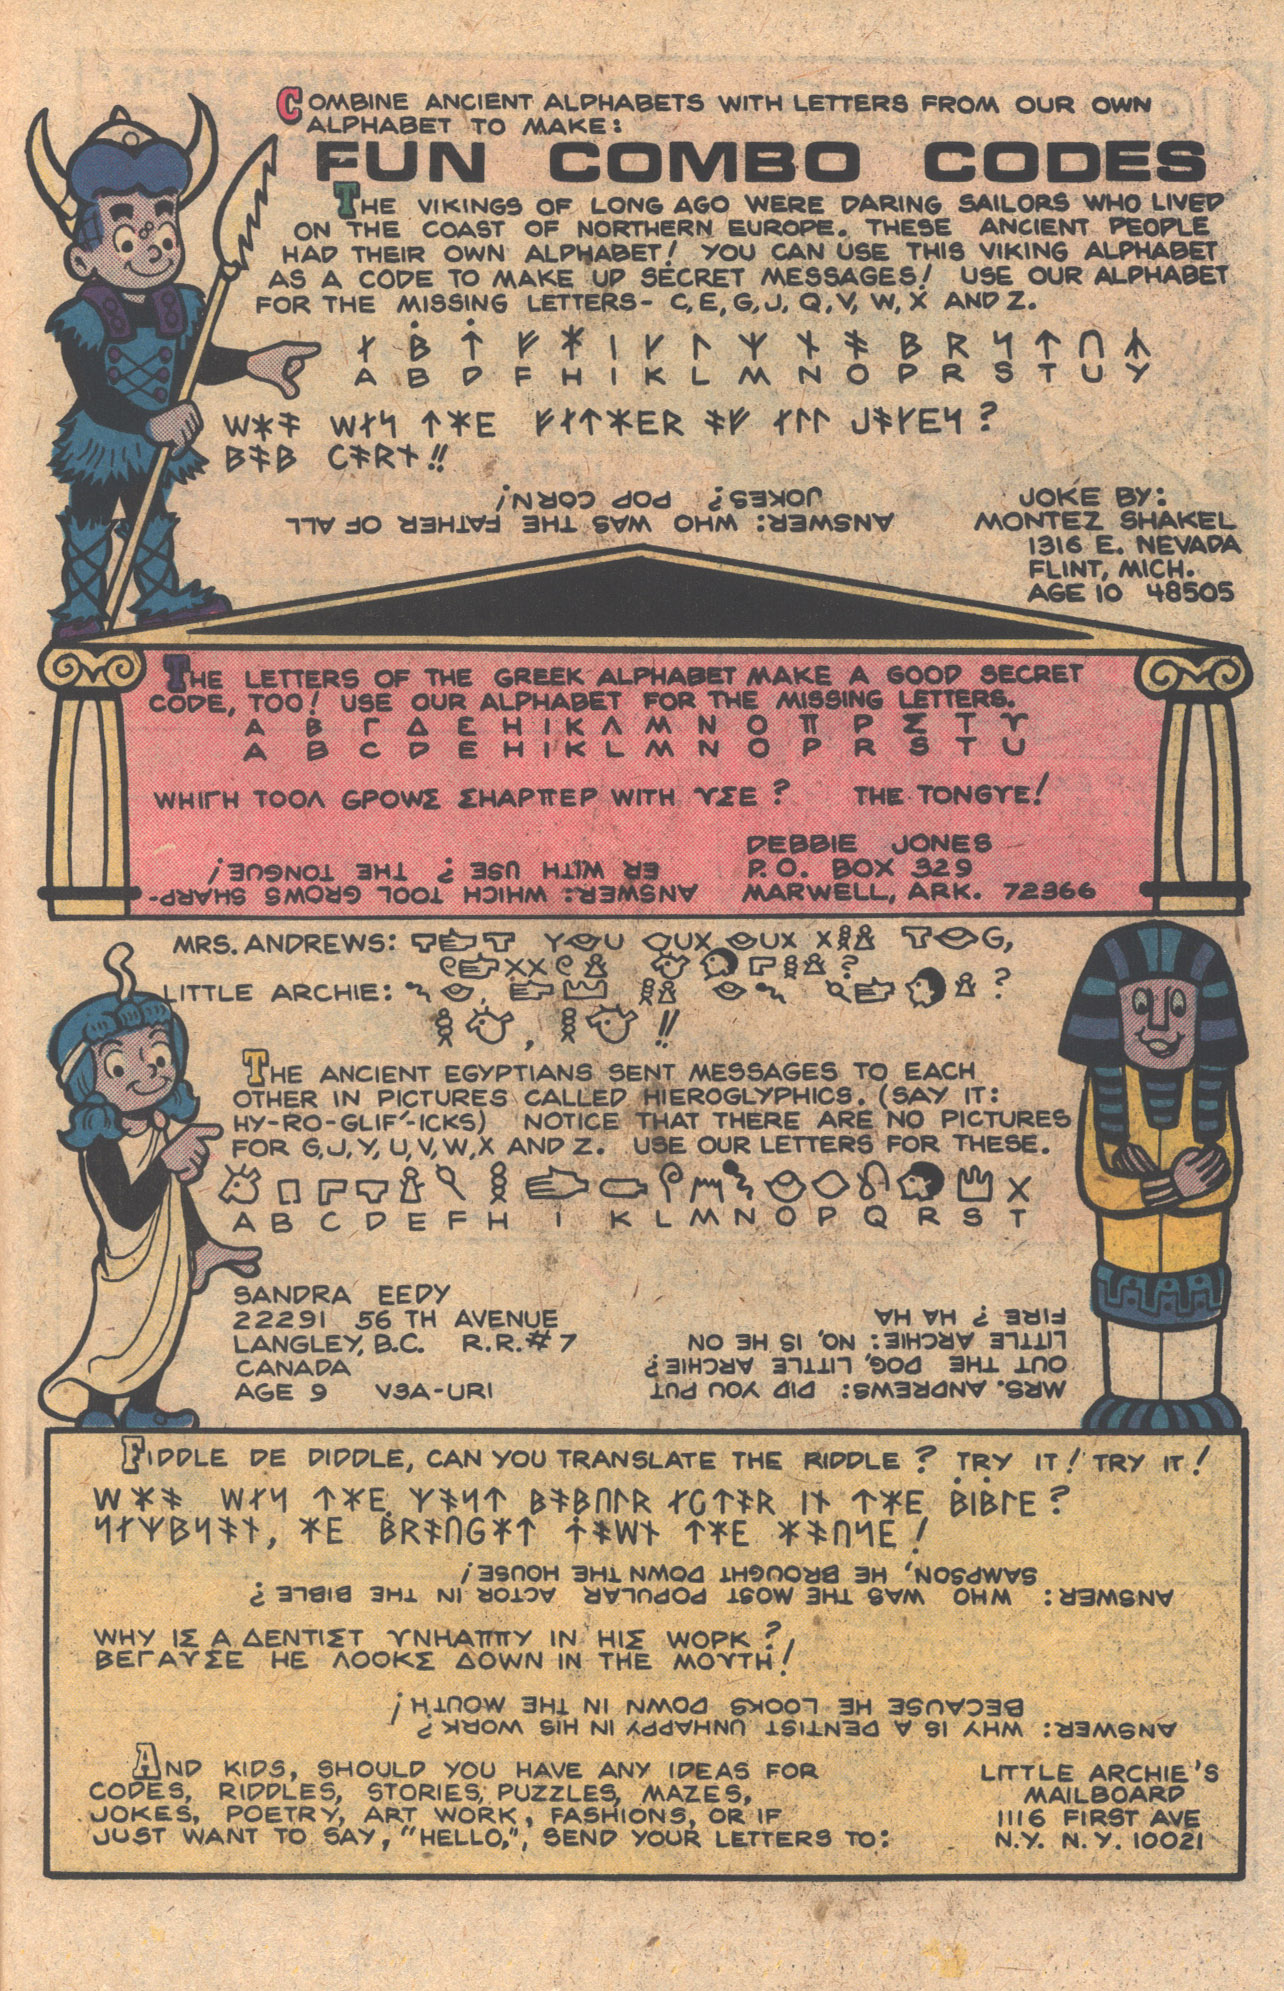 COMBINE ANCIENT ALPHABETS WITH LETTERS FROM OUR OWN
ALPHABET TO MAKE:
FUN COMBO CODES
THE VIKINGS OF LONG AGO WERE DARING SAILORS WHO LIVED
ON THE COAST OF NORTHERN EUROPE. THESE ANCIENT PEOPLE
HAD THEIR OWN ALPHABET! YOU CAN USE THIS VIKING ALPHABET
AS A CODE TO MAKE UP SECRET MESSAGES! USE OUR ALPHABET
FOR THE MISSING LETTERS- C, E, G, J, Q, V, W, X AND Z.
ᛆ ᛒ̇ ᛏ̇ ᚠ ᚼ ᛁ ᚴ ᛚ ᛘ ᚾ ᚯ ᛒ ᚱ ᛋ ᛏ ᚢ ᛦ
A B D F H I K L M N O P R S T U Y
Wᚼᚯ Wᛆᛋ ᛏᚼE ᚠᛆᛏᚼEᚱ ᚯᚠ ᛆᛚᛚ JᚯᚴEᛋ?
ᛒᚯᛒ Cᚯᚱᚾ!!
ANSWER: WHO WAS THE FATHER OF ALL
JOKES? POP CORN!
JOKE BY:
MONTEZ SHAKEL
1316 E. NEVADA
FLINT, MICH.
AGE 10 48505
THE LETTERS OF THE GREEK ALPHABET MAKE A GOOD SECRET
CODE, TOO! USE OUR ALPHABET FOR THE MISSING LETTERS.
Α Β Γ Δ Ε Η Ι Κ Λ Μ Ν Ο Π Ρ Σ Τ ϒ
A B C D E H I K L M N O P R S T U
WHIΓH TOOΛ GΡOWΣ ΣHAΡΠEΡ WITH ϒΣE? THE TONGϒE!
ANSWER: WHICH TOOL GROWS SHARP-
ER WITH USE? THE TONGUE!
DEBBIE JONES
P.O. BOX 329
MARWELL, ARK. 72366
MRS. ANDREWS:
LITTLE ARCHIE:
THE ANCIENT EGYPTIANS SENT MESSAGES TO EACH
OTHER IN PICTURES CALLED HIEROGLYPHICS. (SAY IT:
HY-RO-GLIF'-ICKS) NOTICE THAT THERE ARE NO PICTURES
FOR G, J, Y, U, V, W, X AND Z. USE OUR LETTERS FOR THESE.
A B C D E F H I K L M N O P Q R S T
SANDRA EEDY
22291 56 TH AVENUE
LANGLEY, B.C. R.R.#7
CANADA
AGE 9 V3A-URI
MRS. ANDREWS: DID YOU PUT
OUT THE DOG, LITTLE ARCHIE?
LITTLE ARCHIE: NO, IS HE ON
FIRE? HA HA
FIDDLE DE DIDDLE, CAN YOU TRANSLATE THE RIDDLE? TRY IT! TRY IT!
Wᚼᚯ Wᛆᛋ ᛏᚼE ᛘᚯᛋᛏ ᛒᚯᛒᚢᛚᛆᚱ ᛆCᛏᚯᚱ ᛁᚾ ᛏᚼE ᛒ̇ᛁᛒ̇ᛚE?
ᛋᛆᛘᛒᛋᚯᚾ, ᚼE ᛒ̇ᚱᚯᚢGᚼᛏ ᛏ̇ᚯWᚾ ᛏᚼE ᚼᚯᚢᛋE!
ANSWER: WHO WAS THE MOST POPULAR ACTOR IN THE BIBLE?
SAMPSON, HE BROUGHT DOWN THE HOUSE!
WHY IΣ A ΔENTIΣT ϒNHAΠΠY IN HIΣ WOΡK?
BEΓAϒΣE HE ΛOOKΣ ΔOWN IN THE MOϒTH!
ANSWER: WHY IS A DENTIST UNHAPPY IN HIS WORK?
BECAUSE HE LOOKS DOWN IN THE MOUTH!
AND KIDS, SHOULD YOU HAVE ANY IDEAS FOR
CODES, RIDDLES, STORIES, PUZZLES, MAZES,
JOKES, POETRY, ART WORK, FASHIONS, OR IF
JUST WANT TO SAY, "HELLO,", SEND YOUR LETTERS TO:
LITTLE ARCHIE'S
MAILBOARD
1116 FIRST AVE
N.Y. N.Y. 10021